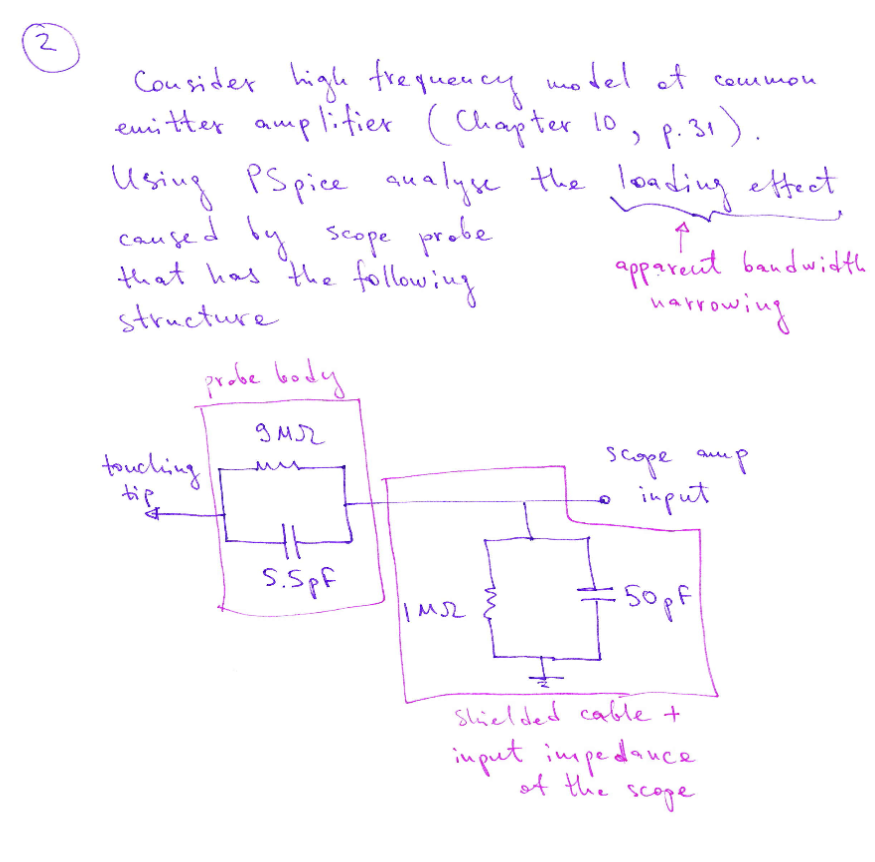 2
Consider high frequency model of common
emitter amplifier (Chapter 10, p.31).
Using PSpice analyse the loading effect
caused by scope probe
that has the following
structure
apparent bandwidth
narrowing
probe body
9MΩ
touching
tip
5.5pF
scope amp
input
1MΩ
50pF
shielded cable +
input impedance
of the scope